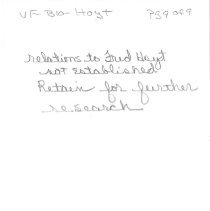 VF Bio Hoyt
relations to Fred Hoyt
not established
Retain for further
research